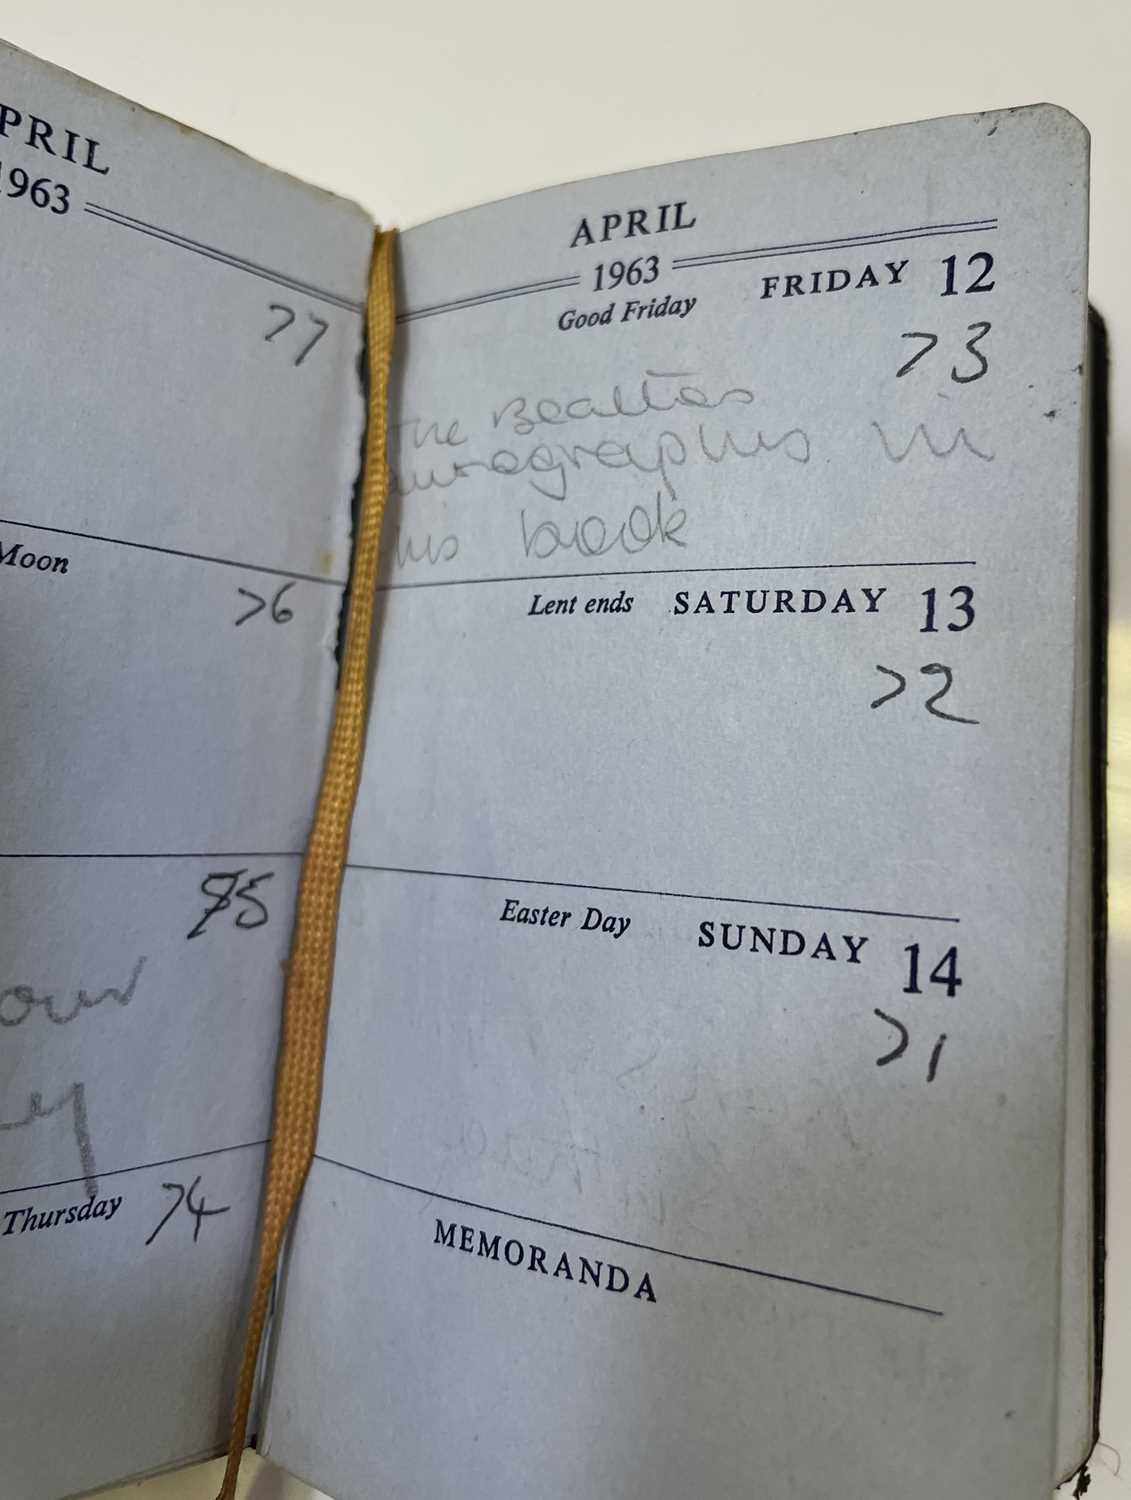 APRIL
1963
77
Moon
76
75
our
y
Thursday 74
APRIL
1963
Good Friday FRIDAY 12
73
The Beatles
autographs in
his book
Lent ends SATURDAY 13
72
Easter Day SUNDAY 14
71
MEMORANDA